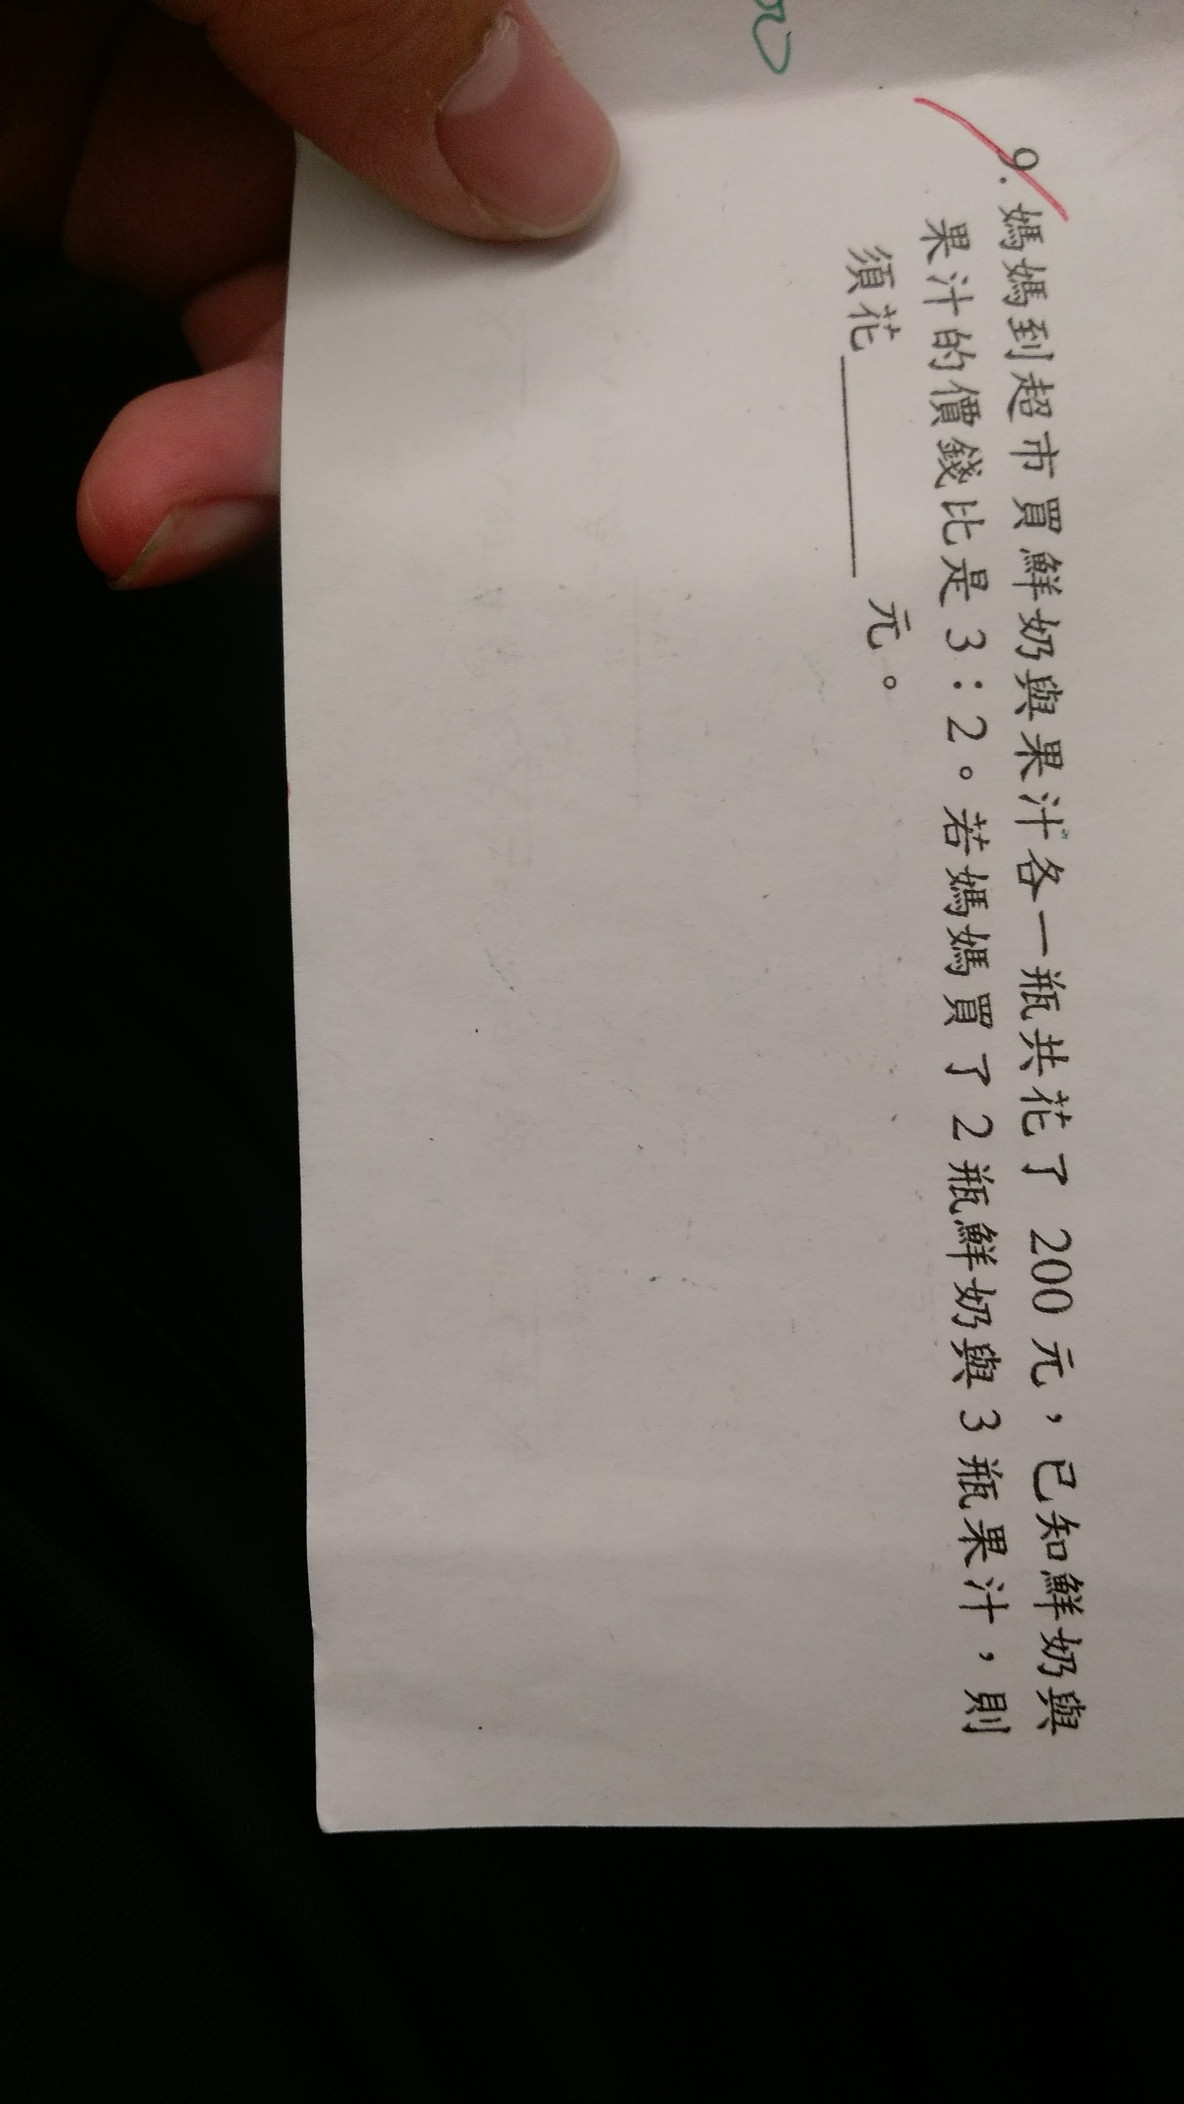 9. 媽媽到超市買鮮奶與果汁各一瓶共花了 200 元，已知鮮奶與
果汁的價錢比是 3：2。若媽媽買了 2 瓶鮮奶與 3 瓶果汁，則
須花________元。